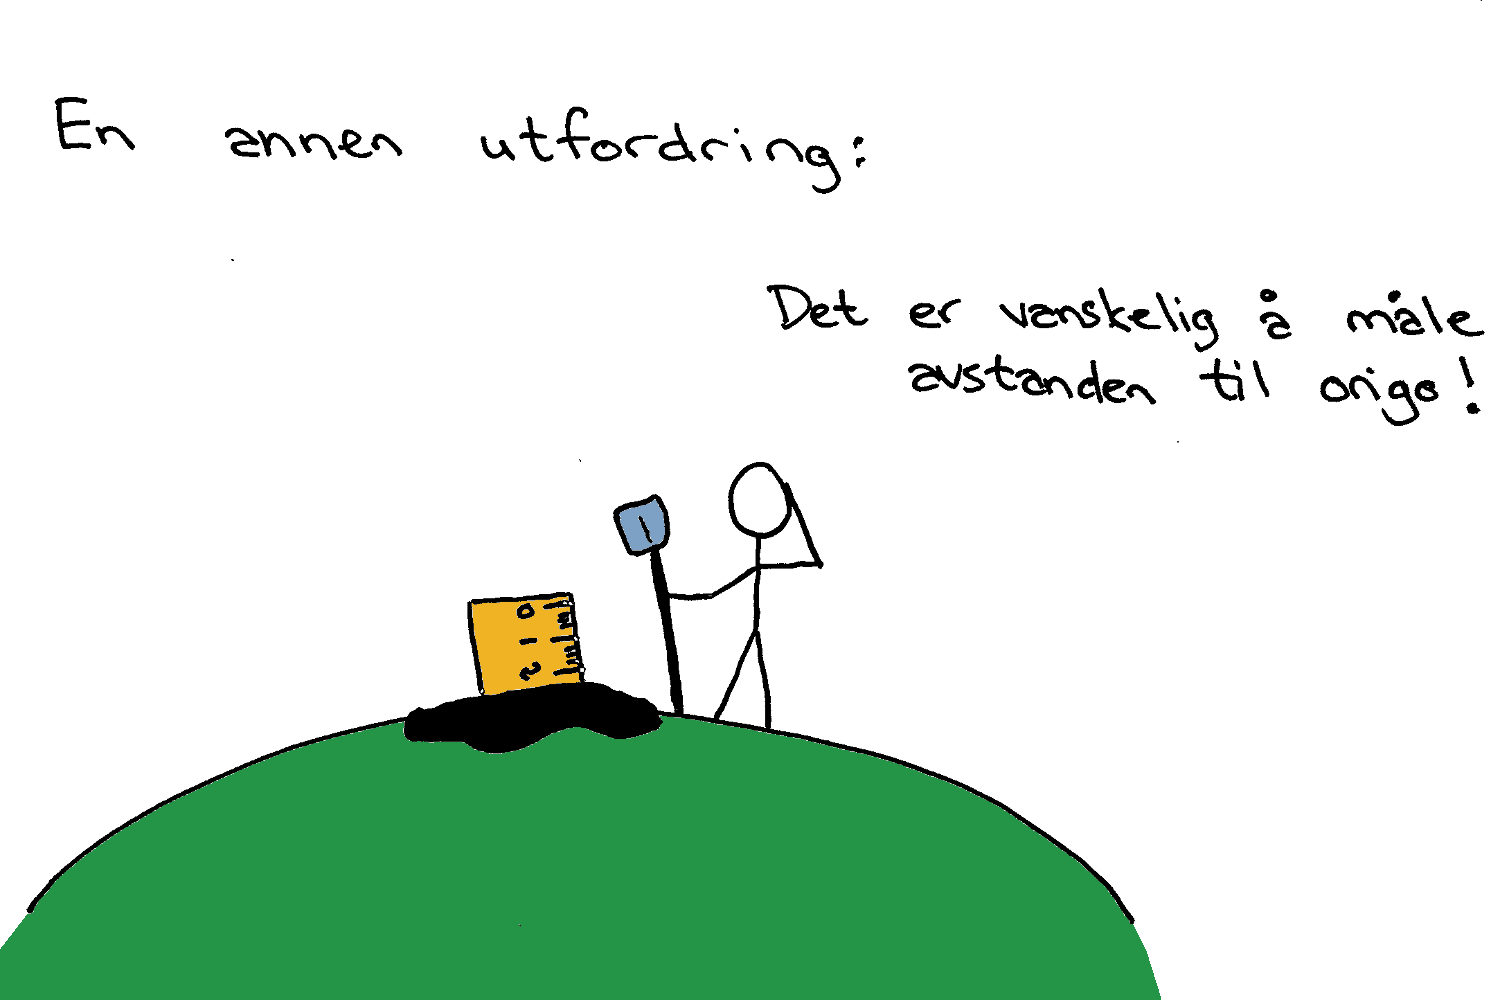 En annen utfordring:
Det er vanskelig å måle
avstanden til origo!
0
1
2